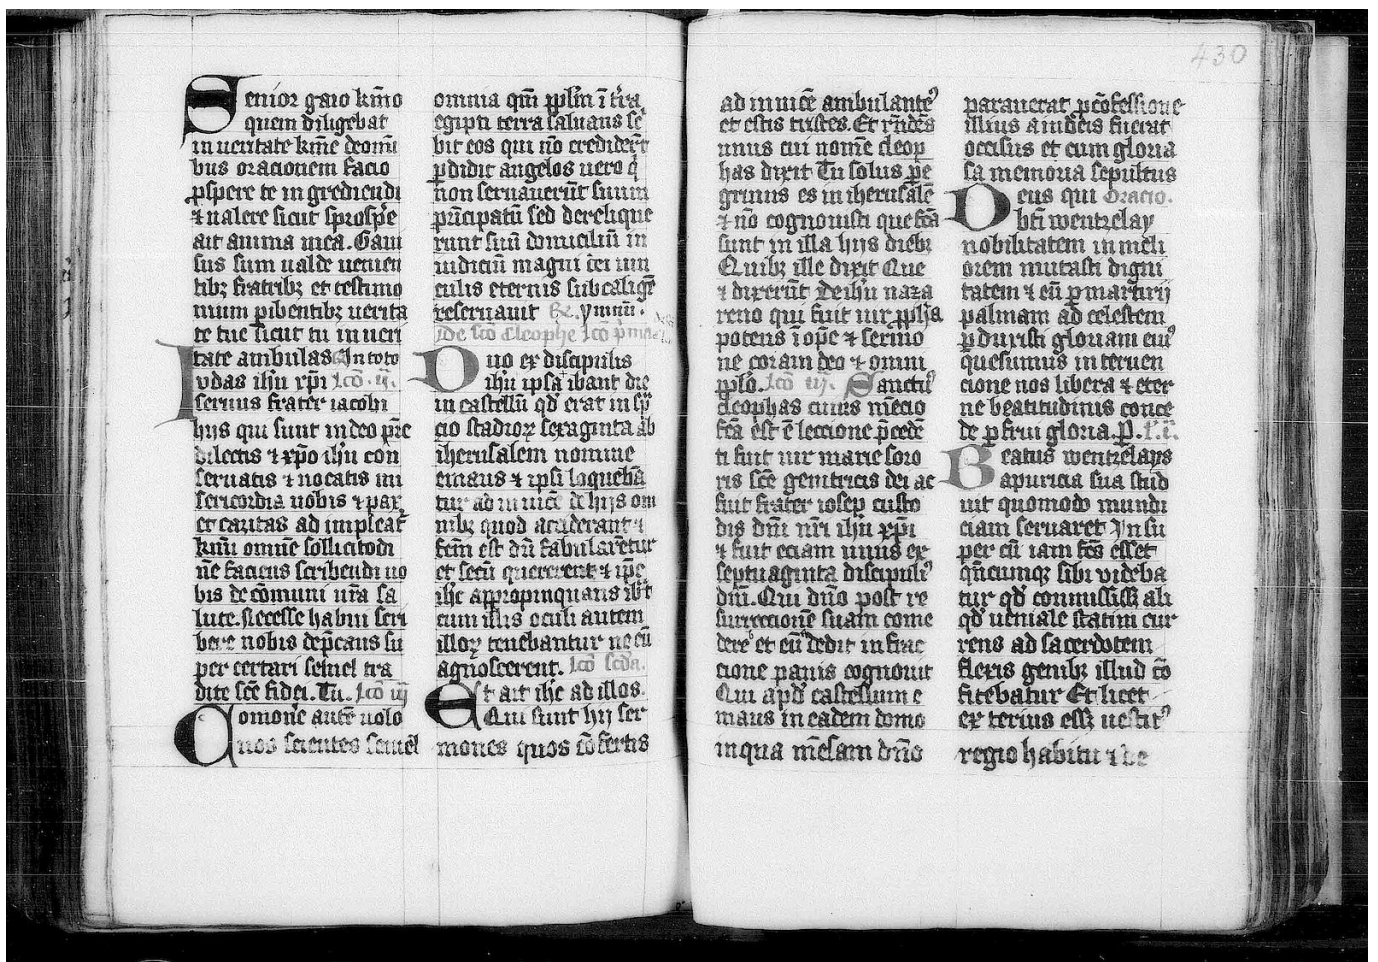 Senior gaio km̄o
quem diligebat
in ueritate km̄e deom̄i
bus oracionem facio
ꝓspere te in grediendi
⁊ ualere sicut ꝓspe
ait anima mea. Gaui
sus sum ualde uenien
tibꝫ fratribꝫ et testimo
nium ꝑibentibꝫ uerita
te tue sicut tu in ueri
tate ambulas In toto
Iudas ihū xp̄i lc̄o .ii.
seruus frater iacobi
hijs qui sunt in deo pr̄e
dilectis ⁊ xp̄o ihū con
seruatis ⁊ uocatis mi
sericordia uobis ⁊ pax
et caritas ad impleat᷑
km̄i omnē sollicitodi
nē faciens scribendi uo
bis de cōmuni ur̄a sa
lute. Necesse habui scri
bere uobis dep̄cans su
per certari semel tra
dite sc̄e fidei. Tu. lc̄o iij
Comone autē uolo
uos scientes semel
omnia qm̄ ppl̄m ī tr̄ra
egipti terra saluans se
bit eos qui nō crediderūt
ꝑdidit angelos uero q̄
non seruauerūt suum
pͥncipatū sed derelique
runt suū domiciliū in
iudiciū magni dei uin
culis eternis sub caligīe
reseruauit Ex. ymnū.
De sc̄o Cleophe lc̄o pͥma
Duo ex discipulis
ihū ipsa ibant die
in castellū qd̄ erat in spā
cio stadioꝝ sexaginta ab
iherusalem nomine
emaus ⁊ ipsi loquebā
tur ad in uicē de hijs om
nibꝫ quod acciderant ⁊
fc̄m est dū fabularētur
et secū quererent ⁊ ip̄e
ihc̄ appropinquans ibt
cum illis oculi autem
illoꝝ tenebantur ne eū
agnoscerent. lc̄o sc̄da.
Et ait ihc̄ ad illos.
Qui sunt hij ser
mones quos cōfertis
430
ad inuicē ambulantes
et estis tristes. Et rn̄dēs
unus cui nomē cleop
has dixit Tu solus pe
grinus es in iherusalē
⁊ nō cognouisti que fc̄a
sunt in illa hijs diebꝫ
Quibꝫ ille dixit Que
⁊ dixerūt De ihū naza
reno qui fuit uir ꝓpha
potens ī ope ⁊ sermo
ne coram deo ⁊ omni
pplo. lc̄o iij. Sanctus
Cleophas cuius mēcio
fc̄a est ē leccione p̄cedē
ti fuit uir marie soro
ris sc̄e genitricis dei ac
fuit frater iosep custo
dis dn̄i nr̄i ihū xp̄i
⁊ fuit eciam unus ex
septuaginta discipulis
dn̄i. Qui dn̄o post re
surrectionē suam come
dere et eū dedit in frac
cione panis cognouit
Qui apd̄ castellum e
maus in eadem domo
in qua mēsam dn̄o
parauerat ꝓ cōfessione
illius a iudeis fuerat
occisus et cum gloria
sa memoria sepultus
Deus qui Oracio.
bt̄i wentzelay
nobilitatem in meli
orem mutasti digni
tatem ⁊ eū ꝑ martirij
palmam ad celestem
ꝑduxisti gloriam eius
quesumus in teruen
cione nos libera ⁊ eter
ne beatitudinis conce
de ꝑfrui gloria. P. l'. i.
Beatus wentzelaus
a puricia sua stud
uit quomodo mundi
ciam seruaret Insu
per cū iam fc̄s esset
qn̄cunqꝫ sibi videba
tur qd̄ commisissꝫ ali
qd̄ ueniale statim cur
rens ad sacerdotem
flexis genibꝫ illud cō
fitebatur Et licet
ex terius essꝫ uestitꝰ
regio habitu ⁊ de